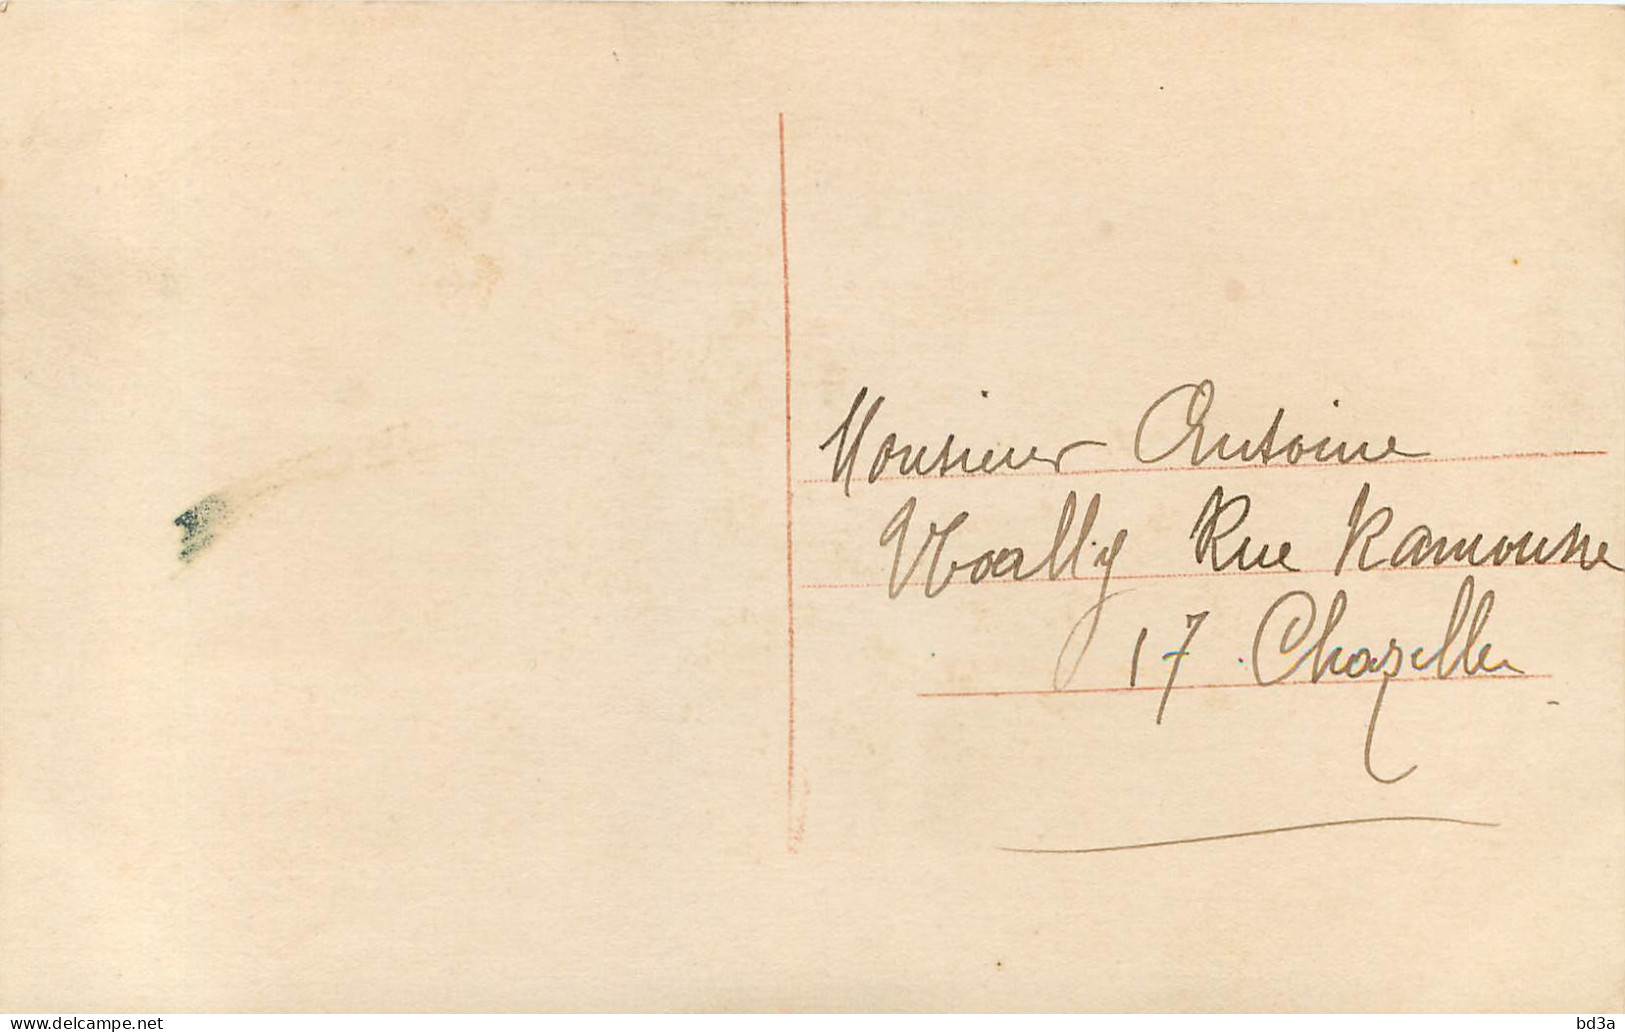 Monsieur Antoine
Noally Rue Ramousse
17 Chazelles
www.delcampe.net
bd3a